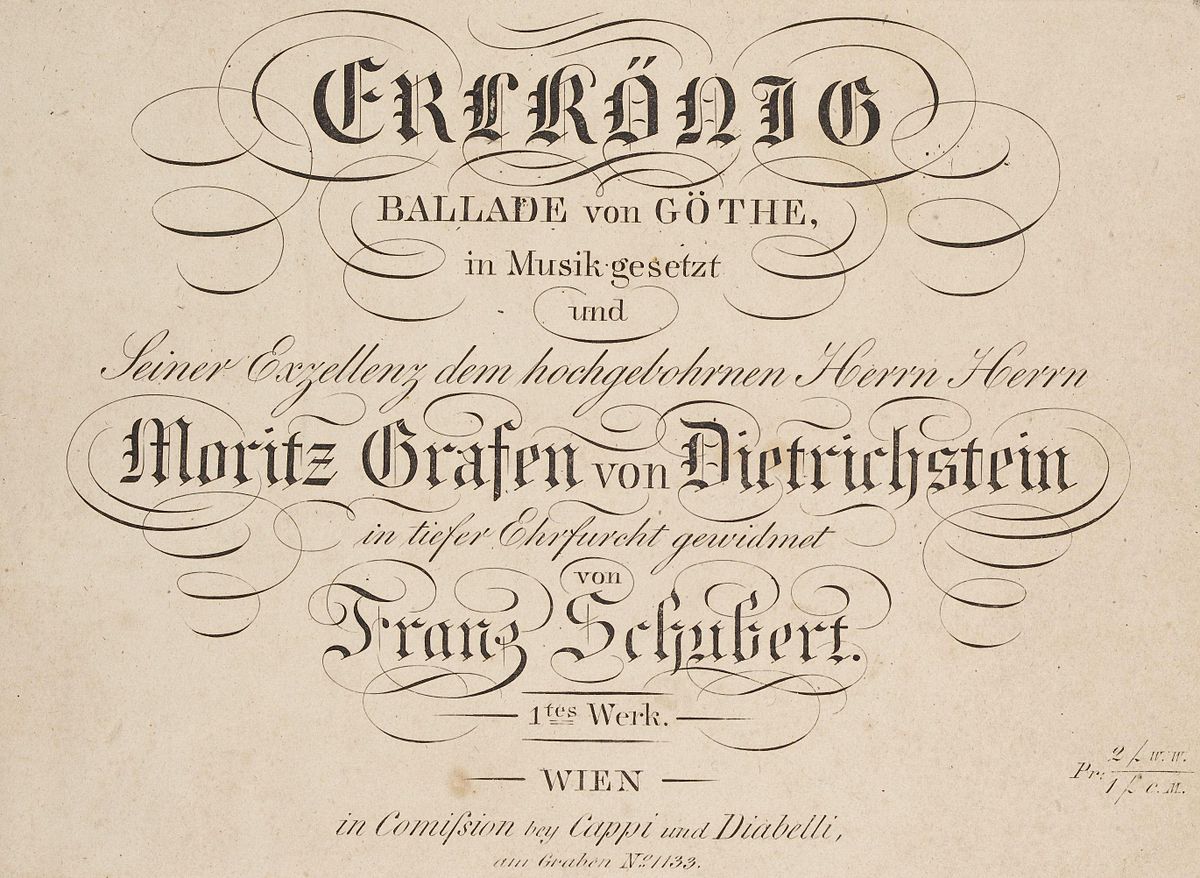 ERLKÖNIG
BALLADE von GÖTHE,
in Musik gesetzt
und
Seiner Exzellenz dem hochgebohrnen Herrn Herrn
Moritz Grafen von Dietrichstein
in tiefer Ehrfurcht gewidmet
von
Franz Schubert.
1tes Werk.
WIEN
in Comiſsion bey Cappi und Diabelli,
am Graben No. 1133.
Pr: 2 f W.W.
1 f C.M.